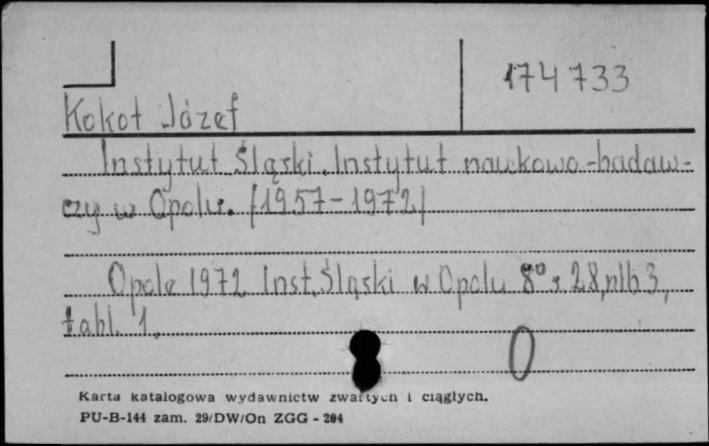 174733
Kokot Józef
Instytut Śląski. Instytut naukowo-badaw-
czy w Opolu. /1957-1972/
Opole 1972 Inst. Śląski w Opolu 8° s. 28, nlb 3,
tabl. 1.
0
Karta katalogowa wydawnictw zwartych i ciągłych.
PU-B-144 zam. 29/DW/On ZGG - 204